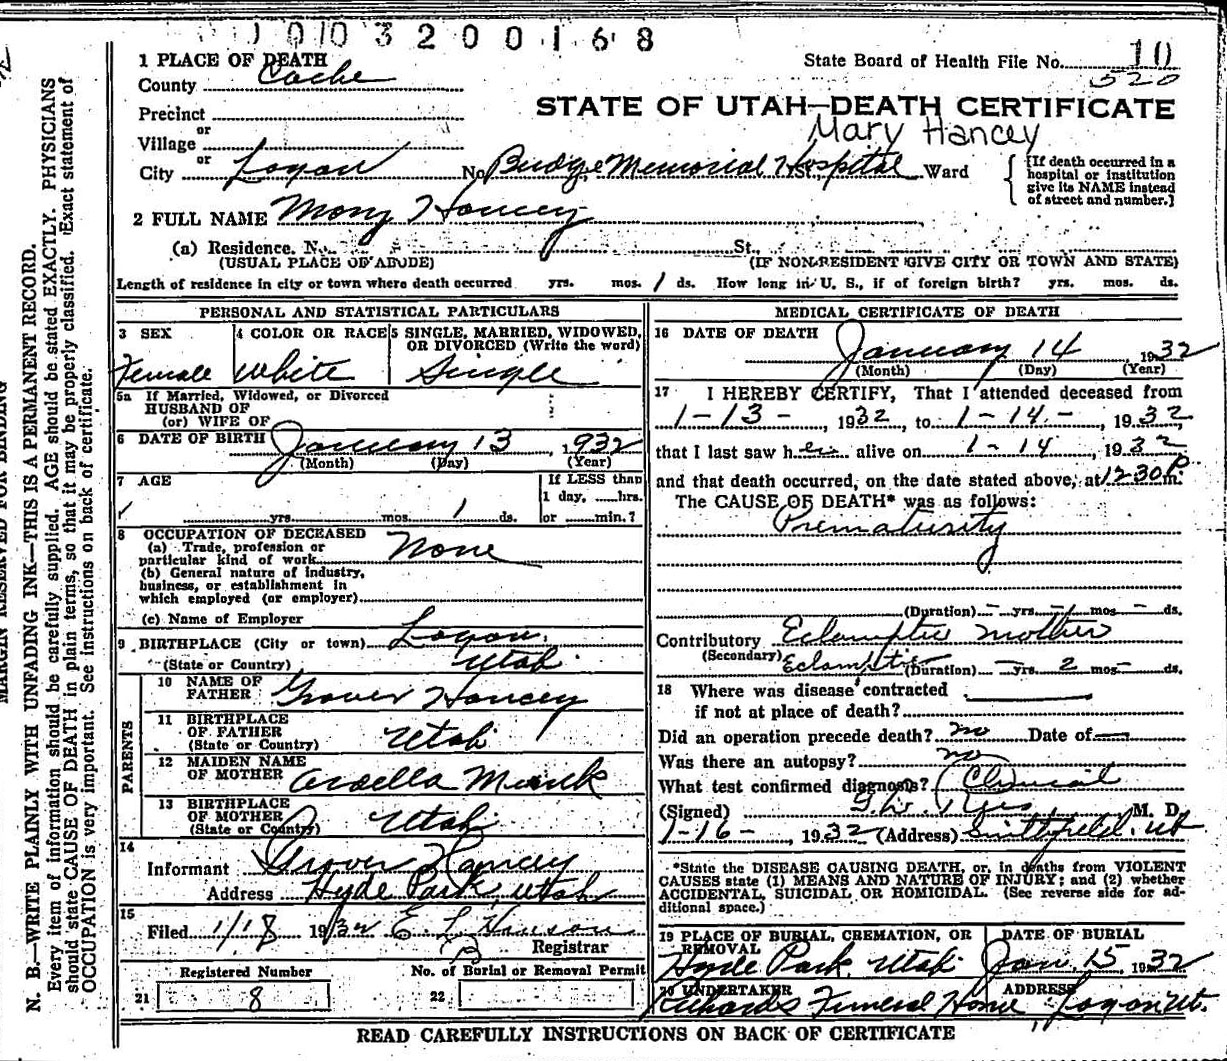 1 0 0 3 2 0 0 1 6 8
1 PLACE OF DEATH
State Board of Health File No. 10
520
County Cache
STATE OF UTAH—DEATH CERTIFICATE
Precinct
or
Village
Mary Hancey
or
City Logan No. Budge Memorial Hospital St., Ward
{If death occurred in a hospital or institution give its NAME instead of street and number.]
2 FULL NAME Mary Hancey
(a) Residence. No. St.,
(USUAL PLACE OF ABODE) (IF NON-RESIDENT GIVE CITY OR TOWN AND STATE)
Length of residence in city or town where death occurred yrs. mos. 1 ds. How long in U. S., if of foreign birth? yrs. mos. ds.
PERSONAL AND STATISTICAL PARTICULARS
3 SEX
Female
4 COLOR OR RACE
White
5 SINGLE, MARRIED, WIDOWED, OR DIVORCED (Write the word)
Single
5a If Married, Widowed, or Divorced
HUSBAND OF
(or) WIFE OF
6 DATE OF BIRTH January 13, 1932
(Month) (Day) (Year)
7 AGE
yrs. mos. 1 ds.
If LESS than
1 day, ......hrs.
or ......min.?
8 OCCUPATION OF DECEASED
(a) Trade, profession or
particular kind of work None
(b) General nature of industry,
business, or establishment in
which employed (or employer)
(c) Name of Employer
9 BIRTHPLACE (City or town) Logan,
(State or Country) Utah
PARENTS
10 NAME OF
FATHER Grover Hancey
11 BIRTHPLACE
OF FATHER
(State or Country) Utah
12 MAIDEN NAME
OF MOTHER Ardella
13 BIRTHPLACE
OF MOTHER
(State or Country) Utah
14
Informant Grover Hancey
Address Hyde Park, Utah
15
Filed 1/18 1932 E. L. Hanson
Registrar
Registered Number
21 8
No. of Burial or Removal Permit
22
MEDICAL CERTIFICATE OF DEATH
16 DATE OF DEATH
January 14, 1932
(Month) (Day) (Year)
17 I HEREBY CERTIFY, That I attended deceased from
1-13-, 1932, to 1-14-, 1932
that I last saw her alive on 1-14, 1932
and that death occurred, on the date stated above, at 12:30 P.m.
The CAUSE OF DEATH* was as follows:
Prematurity
(Duration) - yrs. - mos. - ds.
Contributory Eclamptic mother
(Secondary) (Duration) - yrs. 2 mos - ds.
18 Where was disease contracted
if not at place of death?
Did an operation precede death? no Date of
Was there an autopsy? no
What test confirmed diagnosis? Clinical
(Signed) M. D.
1-16-, 1932 (Address) Smithfield, Ut
*State the DISEASE CAUSING DEATH, or, in deaths from VIOLENT
CAUSES state (1) MEANS AND NATURE OF INJURY; and (2) whether
ACCIDENTAL, SUICIDAL OR HOMICIDAL. (See reverse side for ad-
ditional space.)
19 PLACE OF BURIAL, CREMATION, OR
REMOVAL
Hyde Park, Utah
DATE OF BURIAL
Jan. 15, 1932
20 UNDERTAKER
Funeral Home
ADDRESS
Logan Ut.
READ CAREFULLY INSTRUCTIONS ON BACK OF CERTIFICATE
MARGIN RESERVED FOR BINDING
N. B.—WRITE PLAINLY WITH UNFADING INK—THIS IS A PERMANENT RECORD.
Every item of information should be carefully supplied. AGE should be stated EXACTLY. PHYSICIANS
should state CAUSE OF DEATH in plain terms, so that it may be properly classified. Exact statement of
OCCUPATION is very important. See instructions on back of certificate.